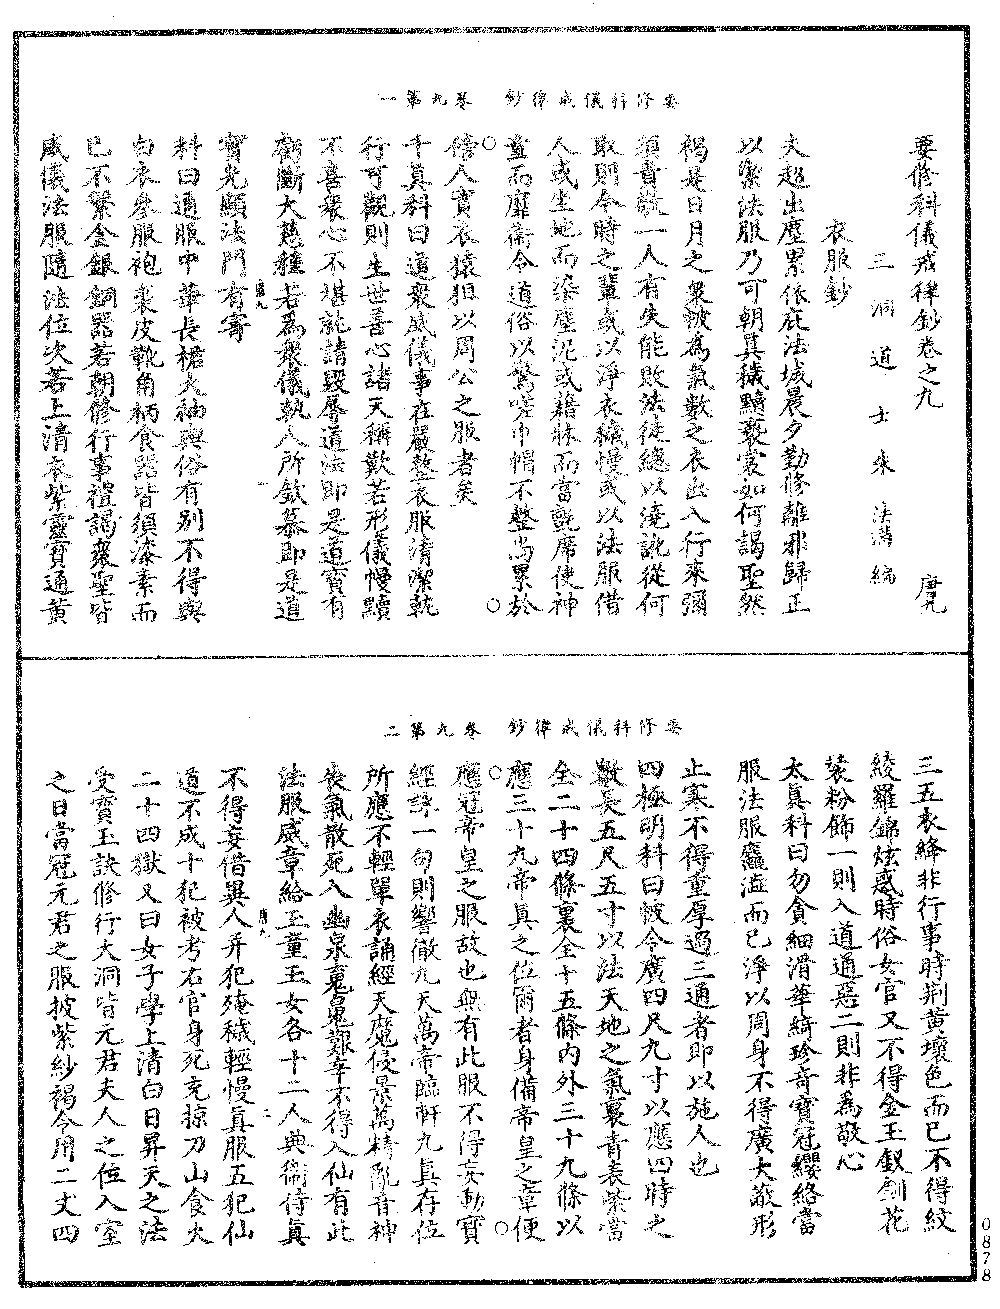 要修科儀戒律鈔　卷九第一
要修科儀戒律鈔卷之九　唐九
三洞道士朱法滿編
衣服鈔
夫超出塵累依庇法城晨夕勤修離邪歸正
以潔法服乃可朝真穢黷褻裳如何謁聖然
褐是日月之象帔為氣數之衣出入行來彌
須貴敬一人有失能敗法徒總以澆訛從何
取則今時之輩或以淨衣穢慢或以法服借
人或坐地而染塵泥或藉牀而當氈席使神
童而靡衛令道俗以驚嗟巾帽不整尚累於
傍人寶衣猿狙以周公之服者矣
千真科曰道眾威儀事在嚴整衣服清潔軌
行可觀則生世善心諸天稱歎若形儀慢黷
不善眾心不堪就請毀辱道法即是道寶有
虧斷大慈種若為眾儀執人所欽慕即是道
寶光顯法門有寄
科曰通服中華長裙大袖與俗有別不得與
白衣參服袍裘皮靴角柄食器皆須漆素而
已不繫金銀銅器若朝修行事禮謁眾聖皆
威儀法服隨法位次若上清衣紫靈寶通黃
要修科儀戒律鈔　卷九第二
三五衣絳非行事時荆黃壞色而已不得紋
綾羅錦炫惑時俗女官又不得金玉釵釧花
裝粉飾一則入道通惡二則非為敬心
太真科曰勿貪細滑華綺珍奇寶冠纓絡當
服法服麤澁而已淨以周身不得廣大蔽形
止寒不得重厚過三通者即以施人也
四極明科曰帔令廣四尺九寸以應四時之
數長五尺五寸以法天地之氣裏青表紫當
全二十四條裏全十五條內外三十九條以
應三十九帝真之位爾者身備帝皇之章便
應冠帝皇之服故也無有此服不得妄動寶
經詠一句則響徹九天萬帝臨軒九真存位
所應不輕單衣誦經天魔侵景萬精亂音神
喪氣散死入幽泉寃鬼艱辛不得入仙有此
法服威章給玉童玉女各十二人典衛侍真
不得妄借異人并犯殗穢輕慢真服五犯仙
道不成十犯被考右官身死充掠刀山食火
二十四獄又曰女子學上清白日昇天之法
受寶玉訣修行大洞皆元君夫人之位入室
之日當冠元君之服披紫紗褐令用二丈四
0878